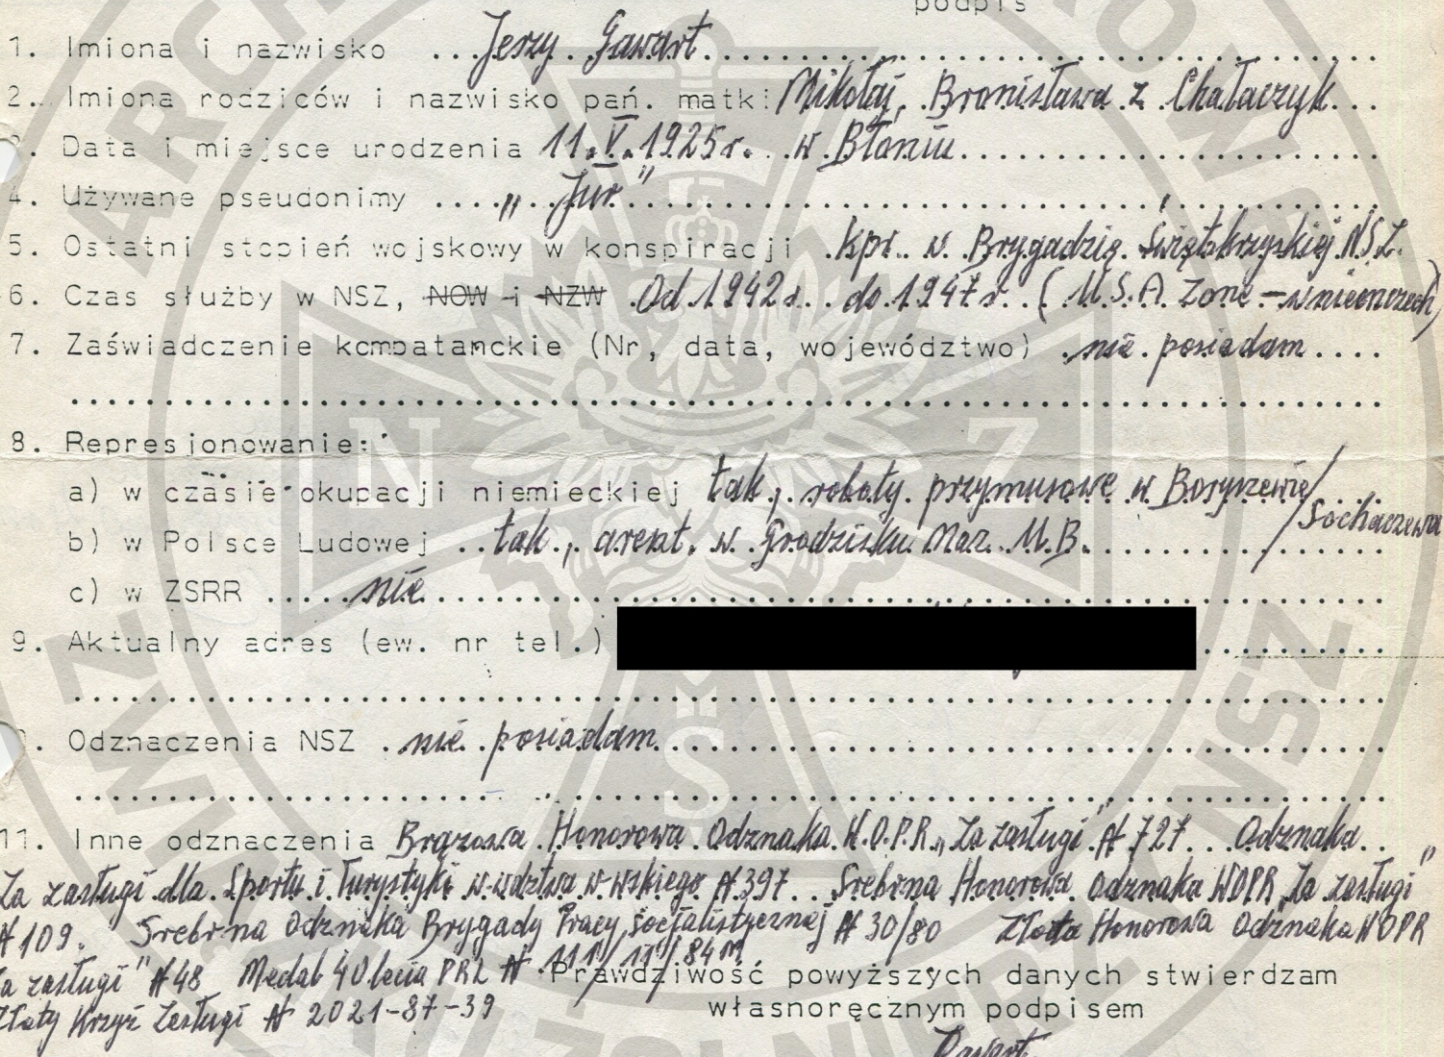 podpis
1. Imiona i nazwisko ... Jerzy Gawart
2. Imiona rodziców i nazwisko pań. matki: Mikołaj, Bronisława z Chałaczyk...
3. Data i miejsce urodzenia 11.V.1925r. w Błoniu
4. Używane pseudonimy .... „Jur”
5. Ostatni stopień wojskowy w konspiracji . kpr. w Brygadzie Świętokrzyskiej NSZ.
6. Czas służby w NSZ, NOW i NZW . Od 1942 r. do 1947 r. (U.S.A. Zone - w niemczech)
7. Zaświadczenie kombatanckie (Nr, data, województwo) . nie posiadam ....
8. Represjonowanie:
a) w czasie okupacji niemieckiej tak, roboty przymusowe w Boryszewie/
Sochaczewa
b) w Polsce Ludowej .. tak, areszt w Grodzisku Maz. U.B.
c) w ZSRR ..... nie
9. Aktualny adres (ew. nr tel.)
. Odznaczenia NSZ . nie posiadam
11. Inne odznaczenia Brązowa Honorowa Odznaka W.O.P.R. „Za zasługi” # 727 ... Odznaka ..
Za zasługi dla Sportu i Turystyki w-wdztwa w-wskiego # 397 .. Srebrna Honorowa Odznaka WOPR „Za zasługi”
# 109. Srebrna Odznaka Brygady Pracy Socjalistycznej # 30/80 Złota Honorowa Odznaka WOPR
Za zasługi" # 48 Medal 40 lecia PRL #
Prawdziwość powyższych danych stwierdzam
Złoty Krzyż Zasługi # 2021-87-39
własnoręcznym podpisem
N Z
M
S
NSZ